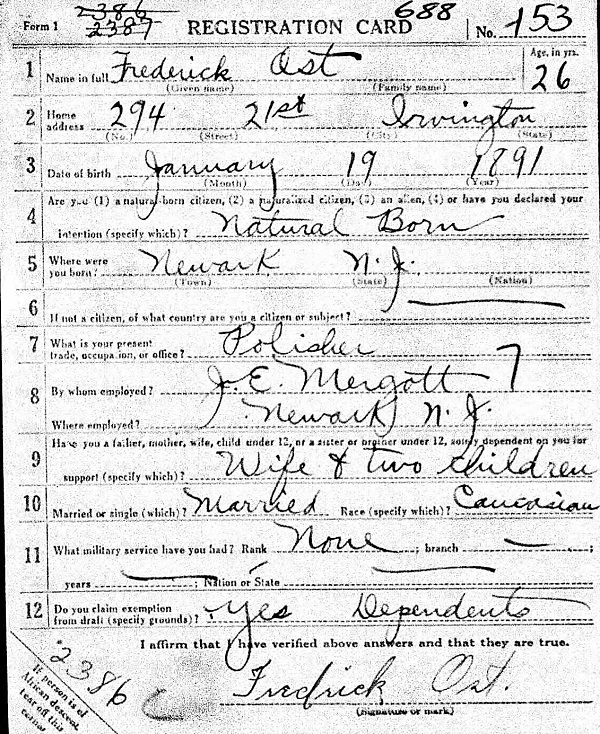 2386 688
Form 1 2387 REGISTRATION CARD No. 153
1 Name in full Frederick Ost Age, in yrs. 26
(Given name) (Family name)
2 Home address 294 21st Irvington
(No.) (Street) (City) (State)
3 Date of birth January 19 1891
(Month) (Day) (Year)
Are you (1) a natural-born citizen, (2) a naturalized citizen, (3) an alien, (4) or have you declared your
4 intention (specify which)? Natural Born
5 Where were you born? Newark N. J.
(Town) (State) (Nation)
6 If not a citizen, of what country are you a citizen or subject?
7 What is your present trade, occupation, or office? Polisher
8 By whom employed? J. E. Mergott 7
Where employed? Newark N. J.
Have you a father, mother, wife, child under 12, or a sister or brother under 12, solely dependent on you for
9 support (specify which)? Wife & two children
10 Married or single (which)? Married Race (specify which)? Caucasian
11 What military service have you had? Rank None ; branch — ;
years — ; Nation or State —
12 Do you claim exemption from draft (specify grounds)? Yes Dependents
I affirm that I have verified above answers and that they are true.
2386
Fredrick Ost.
(Signature or mark)
If person is of
African descent,
tear off this
corner